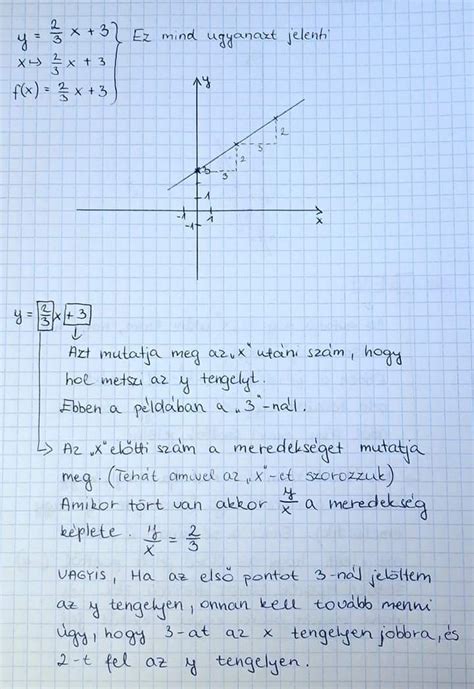 y = 2/3 x + 3
x ↦ 2/3 x + 3
f(x) = 2/3 x + 3
Ez mind ugyanazt jelenti
y
2
5
2
3
3
1
-1
1
x
-1
y = 2/3 x + 3
Azt mutatja meg az „x" utáni szám, hogy
hol metszi az y tengelyt.
Ebben a példában a „3"-nál.
Az „x" előtti szám a meredekséget mutatja
meg. (Tehát amivel az „x"-et szorozzuk)
Amikor tört van akkor y/x a meredekség
képlete. y/x = 2/3
VAGYIS, Ha az első pontot 3-nál jelöltem
az y tengelyen, onnan kell tovább menni
úgy, hogy 3-at az x tengelyen jobbra, és
2-t fel az y tengelyen.